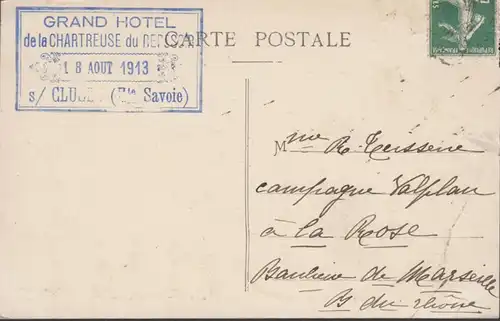 GRAND HOTEL
de la CHARTREUSE du
CARTE POSTALE
18 AOUT 1913
s/ CLUSES (Hte Savoie)
Mme R. Teisseire
campagne Valplan
à la Rose
Banlieue de Marseille
B du Rhône